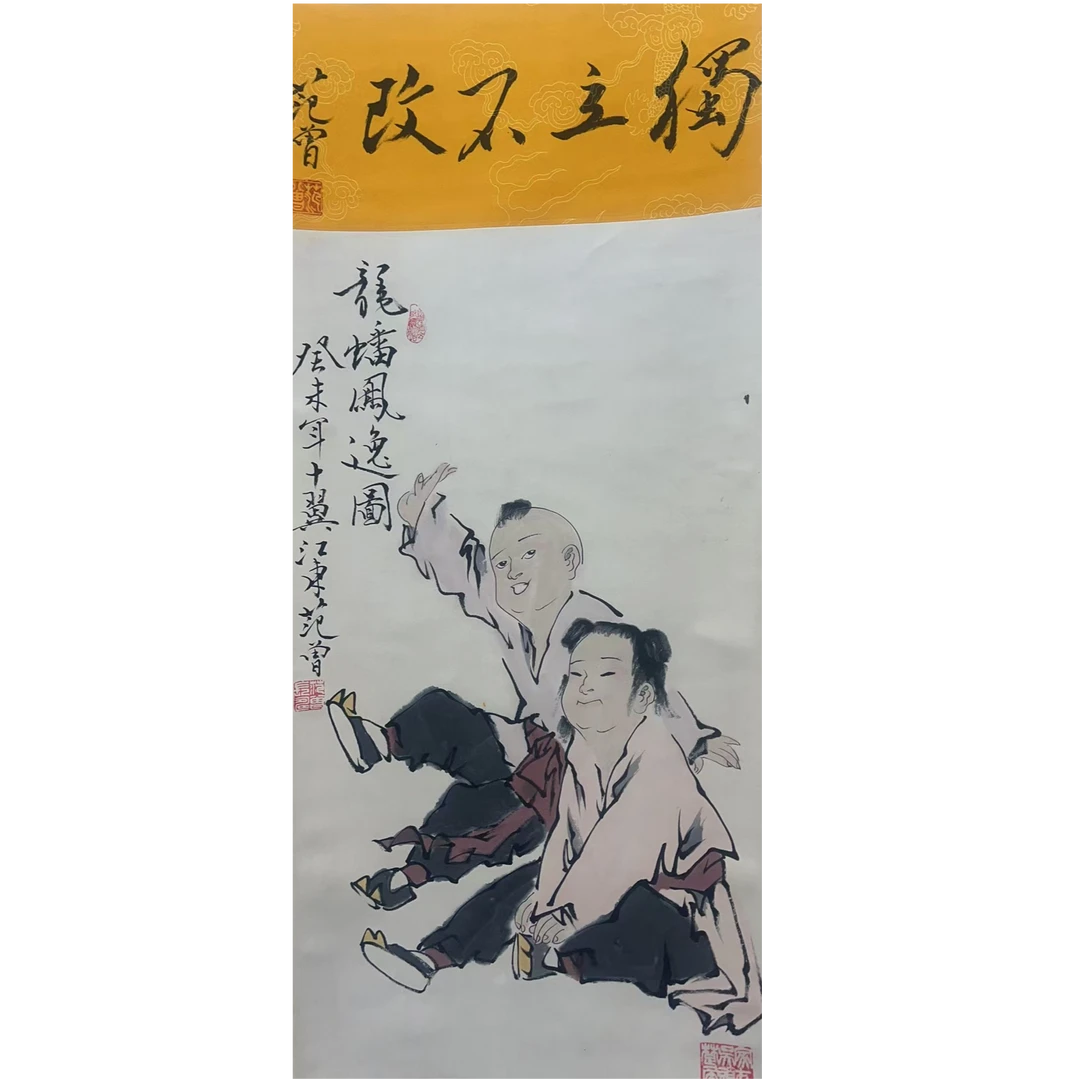 獨立不改
范曾
龍蟠鳳逸圖
癸未年十翼江東范曾